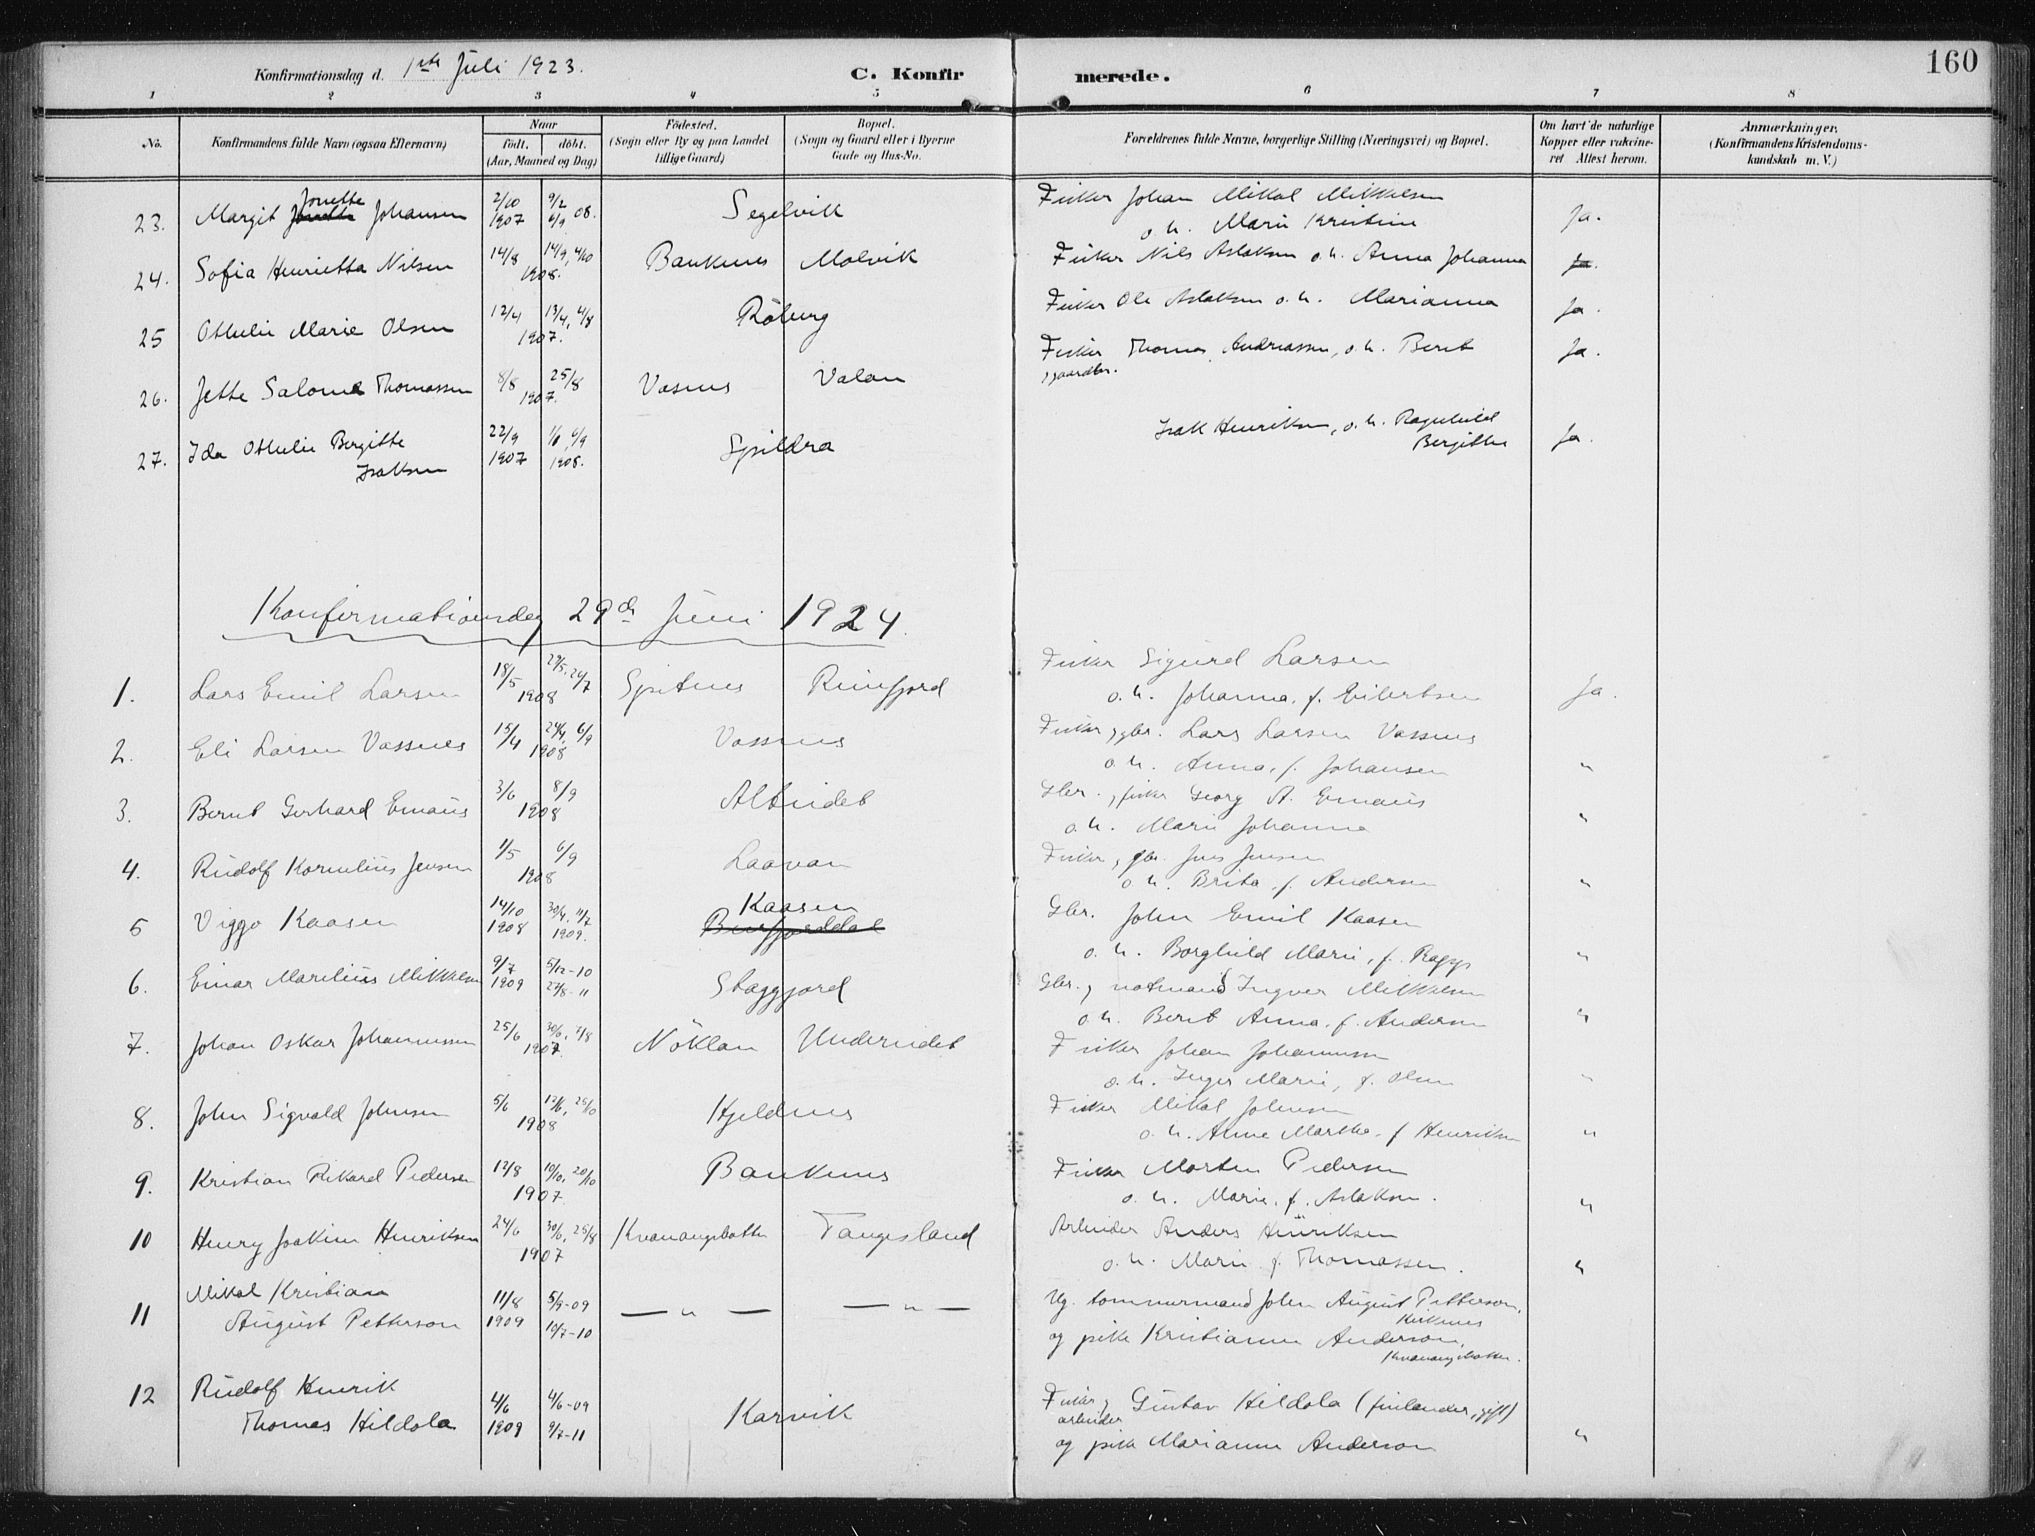 160
Konfirmationsdag d. 1ste Juli 1923. C. Konfirmerede.
1 2 3 4 5 6 7 8
No. Konfirmandens fulde Navn (ogsaa Efternavn) Naar født. døbt. (Aar, Maaned og Dag) Fødested. (Sogn eller By og paa Landet tillige Gaard) Bopæl. (Sogn og Gaard eller i Byerne Gade og Hus-No. Forældrenes fulde Navne, borgerlige Stilling (Næringsvei) og Bopæl. Om havt de naturlige Kopper eller vakcineret Attest herom. Anmærkninger. (Konfirmandens Kristendomskundskab m. V.)
23. Margit Jonette Johansen 2/10 1907 9/2 6/9 08. Segelvik Fisker Johan Mikal Mikkelsen
o. h. Marie Kristine Ja.
24. Sofia Henrietta Nilsen 14/8 14/9, 4/10 1908. Baukenes Molvik Fisker Nils Aslaksen o. h. Anna Johanna Ja.
25 Othelie Marie Olsen 12/4 13/4, 4/8 1907. Röberg Fisker Ole Aslaksen o. h. Marianna Ja.
26. Jette Salome Thomassen 8/8 25/8 1907. Vasnes Valan Fisker Thomas Andreassen, o. h. Berit Ja.
gaardbr.
27. Ida Othelie Bergitte 22/9 1907 6/9 1908. Spildra Isak Henriksen, o. h. Ragnhild
Isaksen Bergitte Ja.
Konfirmationsdag 29de Juni 1924.
1. Lars Emil Larsen 18/5 29/5, 24/7 1908 Spitnes Reinfjord Fisker Sigurd Larsen
o. h. Johanna, f. Eilertsen Ja.
2. Eli Larsen Vassnes 15/4 24/4, 6/9 1908 Vassnes Fisker, gbr. Lars Larsen Vassnes
o. h. Anna, f. Johansen "
3. Bernt Gerhard Emaus 3/6 8/9 1908 Alteidet Gbr., fisker Georg A. Emaus
o. h. Marie Johanna "
4. Rudolf Kornelius Jensen 1/5 6/9 1908 Laavan Fisker, gbr. Jens Jensen
o. h. Brita, f. Andersen "
5 Viggo Kaasen 14/10 1908 30/4, 11/7 1909. Kaasen
Burfjorddal Gbr. John Emil Kaasen
o. h. Borghild Marie, f. Rapp "
6. Einar Marelius Mikkelsen 9/7 1909 5/12-10 27/8-11 Staggjord Gbr., notmand Ingver Mikkelsen
o. h. Berit Anna, f. Andersen "
7. Johan Oskar Johannessen 25/6 30/6, 7/8 1907. Nöklan Undereidet Fisker Johan Johannessen
o. h. Inger Marie, f. Olsen "
8. John Sigvald Johnsen 5/6 12/6, 25/10 1908 Hjeldnes Fisker Mikal Johnsen
o. h. Anne Marthe, f. Henriksen "
9. Kristian Rikard Pedersen 12/8 10/10, 20/10 1907 Baukenes Fisker Morten Pedersen
o. h. Marie, f. Aslaksen. "
10 Henry Joakim Henriksen 24/6 30/6, 25/8 1907 Kvænangsbotten Tangesland Arbeider Anders Henriksen
o. h. Marie f. Thomassen. "
11 Mikal Kristian 11/8 5/9-09
August Petterson 1909 10/7-10 — " — — " — Ug. tømmermand John August Petterson,
Kirkenes
og pike Kristianne Anderson,
Kvænangsbotten.
12 Rudolf Henrik
Thomas Hildola 4/6 1909 4/6-09 9/7-11 Karvik Fisker, arbeider Gustav Hildola (finlænder, gift)
og pike Marianne Anderson "